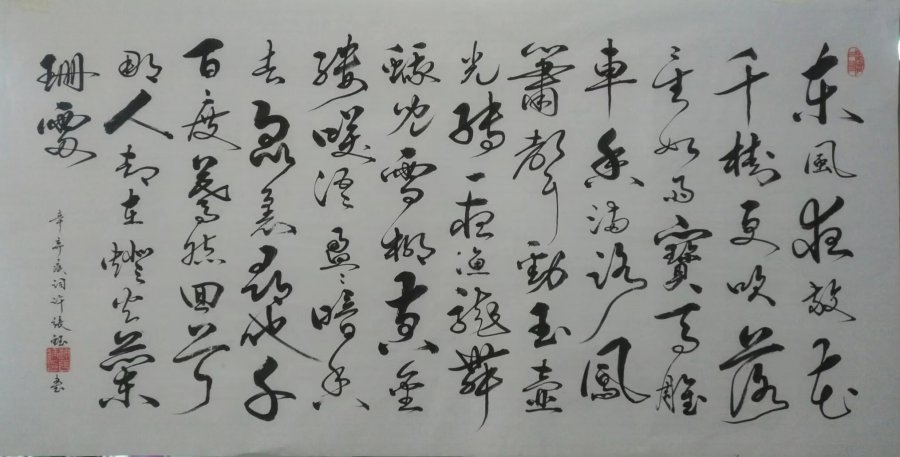 東風夜放花
千樹更吹落
星如雨寶馬雕
車香滿路鳳
簫聲動玉壺
光轉一夜漁龍舞
蛾兒雪柳黃金
縷咲語盈〻暗香
去眾裏尋他千
百度驀然回首
那人却在燈火蘭
珊處
辛弃疾词许张钰書